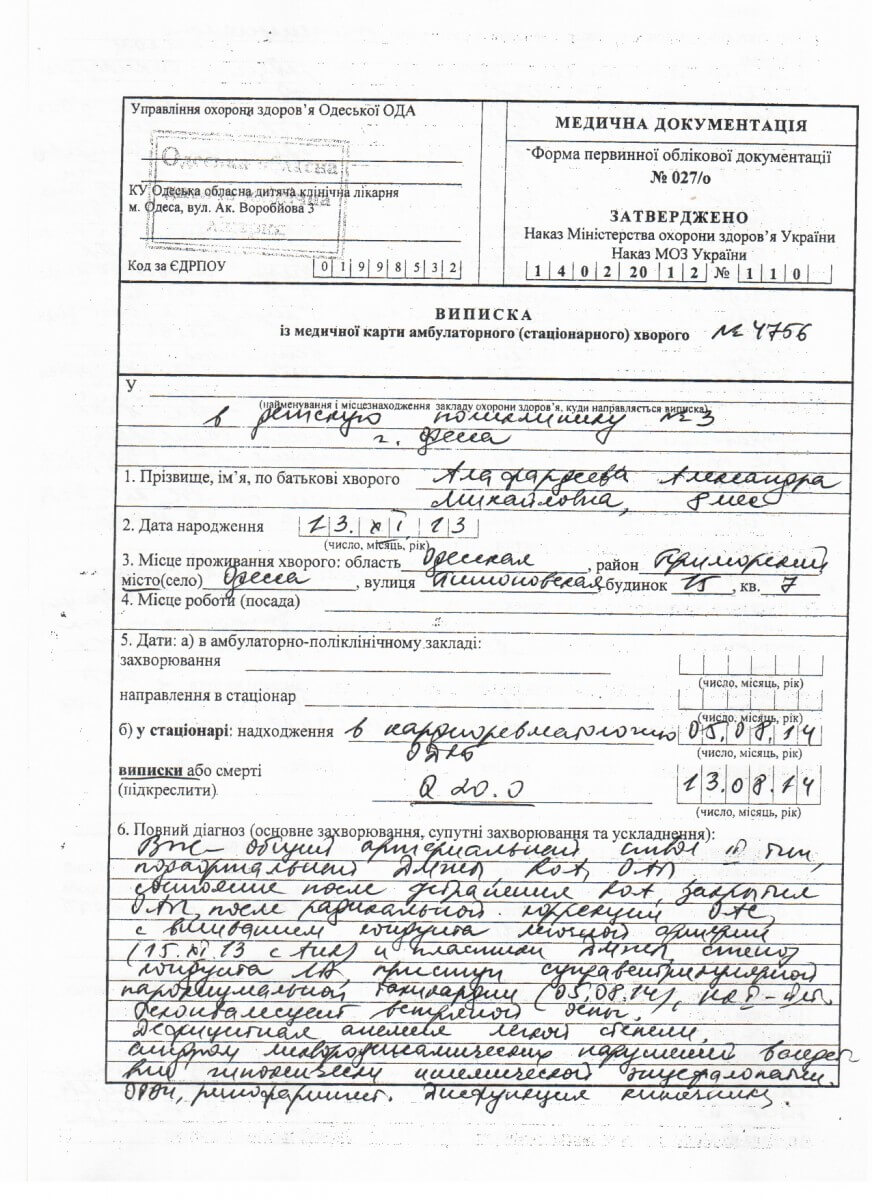 Управління охорони здоров'я Одеської ОДА
Одеська обласна
КУ Одеська обласна дитяча клінічна лікарня
м. Одеса, вул. Ак. Воробйова 3
Код за ЄДРПОУ 0 1 9 9 8 5 3 2
МЕДИЧНА ДОКУМЕНТАЦІЯ
Форма первинної облікової документації
№ 027/о
ЗАТВЕРДЖЕНО
Наказ Міністерства охорони здоров'я України
Наказ МОЗ України
1 4 0 2 20 1 2 № 1 1 0
ВИПИСКА
із медичної карти амбулаторного (стаціонарного) хворого № 4756
У
(найменування і місцезнаходження закладу охорони здоров'я, куди направляється виписка)
в детскую поликлинику № 3
г. Одесса
1. Прізвище, ім'я, по батькові хворого Александра
Михайловна, 8 мес
2. Дата народження 13.XI.13
(число, місяць, рік)
3. Місце проживання хворого: область Одесская, район Приморский
місто(село) Одесса, вулиця будинок 15, кв. 7
4. Місце роботи (посада)
5. Дати: а) в амбулаторно-поліклінічному закладі:
захворювання
(число, місяць, рік)
направлення в стаціонар
(число, місяць, рік)
б) у стаціонарі: надходження в кардиоревматологию 05.08.14
ОДКБ (число, місяць, рік)
виписки або смерті 13.08.14
(підкреслити) Q 20.0
(число, місяць, рік)
6. Повний діагноз (основне захворювання, супутні захворювання та ускладнення):
ВПС – общий артериальный ствол III тип,
ДМЖП, КоА, ОАП
состояние после устранения КоА, закрытия
ОАП, после радикальной коррекции ОАС
с вшиванием кондуита легочной артерии
(15.XI.13 и пластики ДМЖП, стеноз
кондуита ЛА, приступ суправентрикулярной
пароксизмальной тахикардии (05.08.14),
Реконвалесцент ветряной оспы.
Дефицитная анемия легкой степени,
синдром ликвородинамических нарушений
гипоксически ишемической энцефалопатии.
ринофарингит. Дисфункция кишечника.